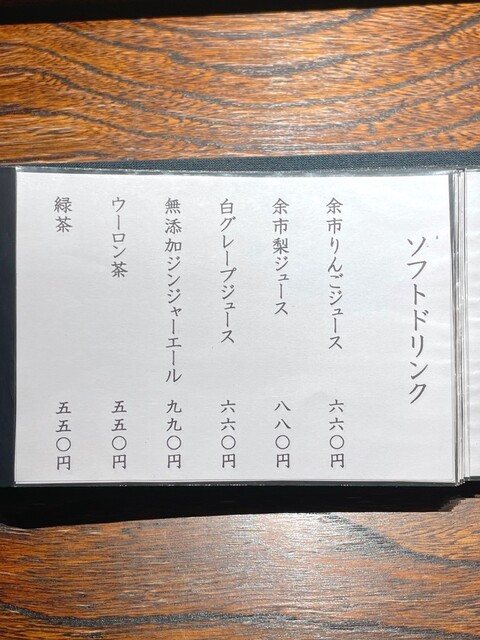 ソフトドリンク
余市りんごジュース 六六〇円
余市梨ジュース 八八〇円
白グレープジュース 六六〇円
無添加ジンジャーエール 九九〇円
ウーロン茶 五五〇円
緑茶 五五〇円